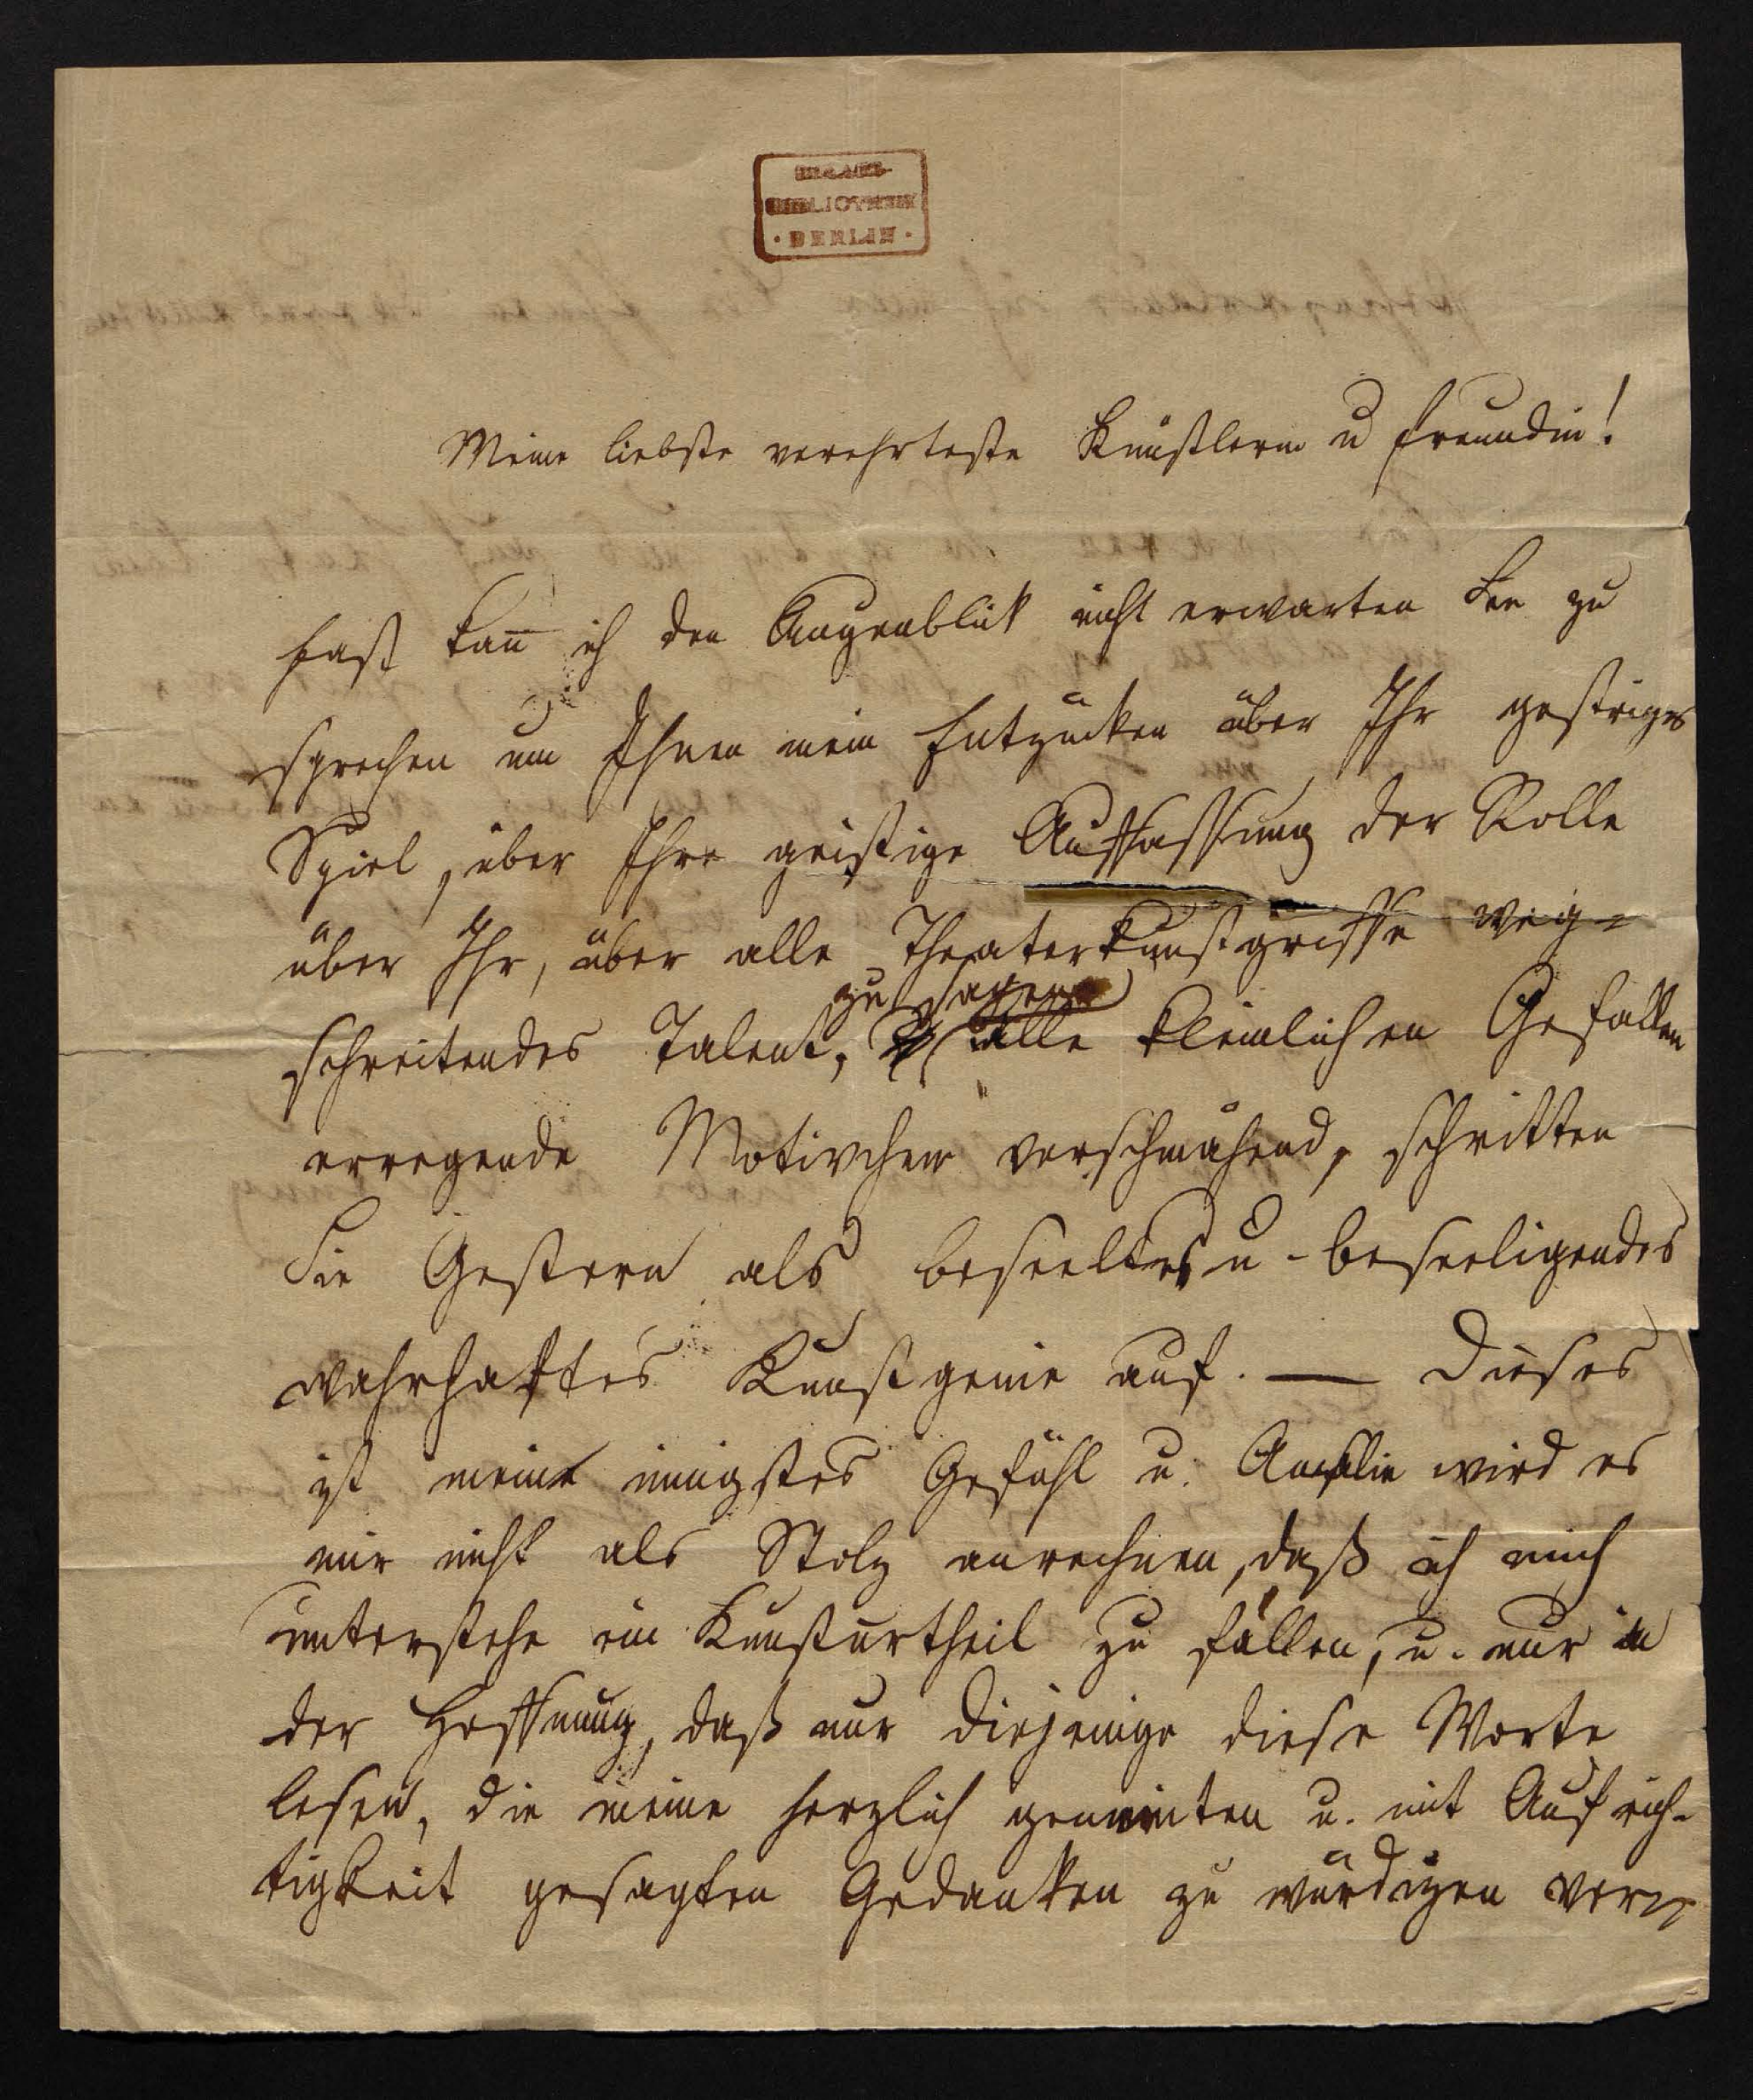 BIBLIOTHEK
· BERLIN ·
Meine liebste verehrteste Künstlerin u Freundin!
Fast kan̄ ich den Augenblick nicht erwarten Sie zu
sprechen um Ihnen mein Entzücken über Ihr gestriges
Spiel, über Ihre geistige Auffassung der Rolle
über Ihr, über alle Theaterkunstgriffe weg-
schreitendes Talent, zu sagen. Alle kleinlichen Gefallen
erregende Motivchen verschmähend, schritten
Sie Gestern als beseeltes u. beseeligendes
wahrhaftes Kunstgenie auf. — Dieses
ist mein innigstes Gefühl u. Amalie wird es
mir nicht als Stolz anrechnen, daß ich mich
unterstehe ein Kunsturtheil zu fällen, u. nur in
der Hoffnung, daß nur diejenige diese Worte
lesen, die meine herzlich gemeinten u. mit Aufrich-
tigkeit gesagten Gedanken zu würdigen ver-